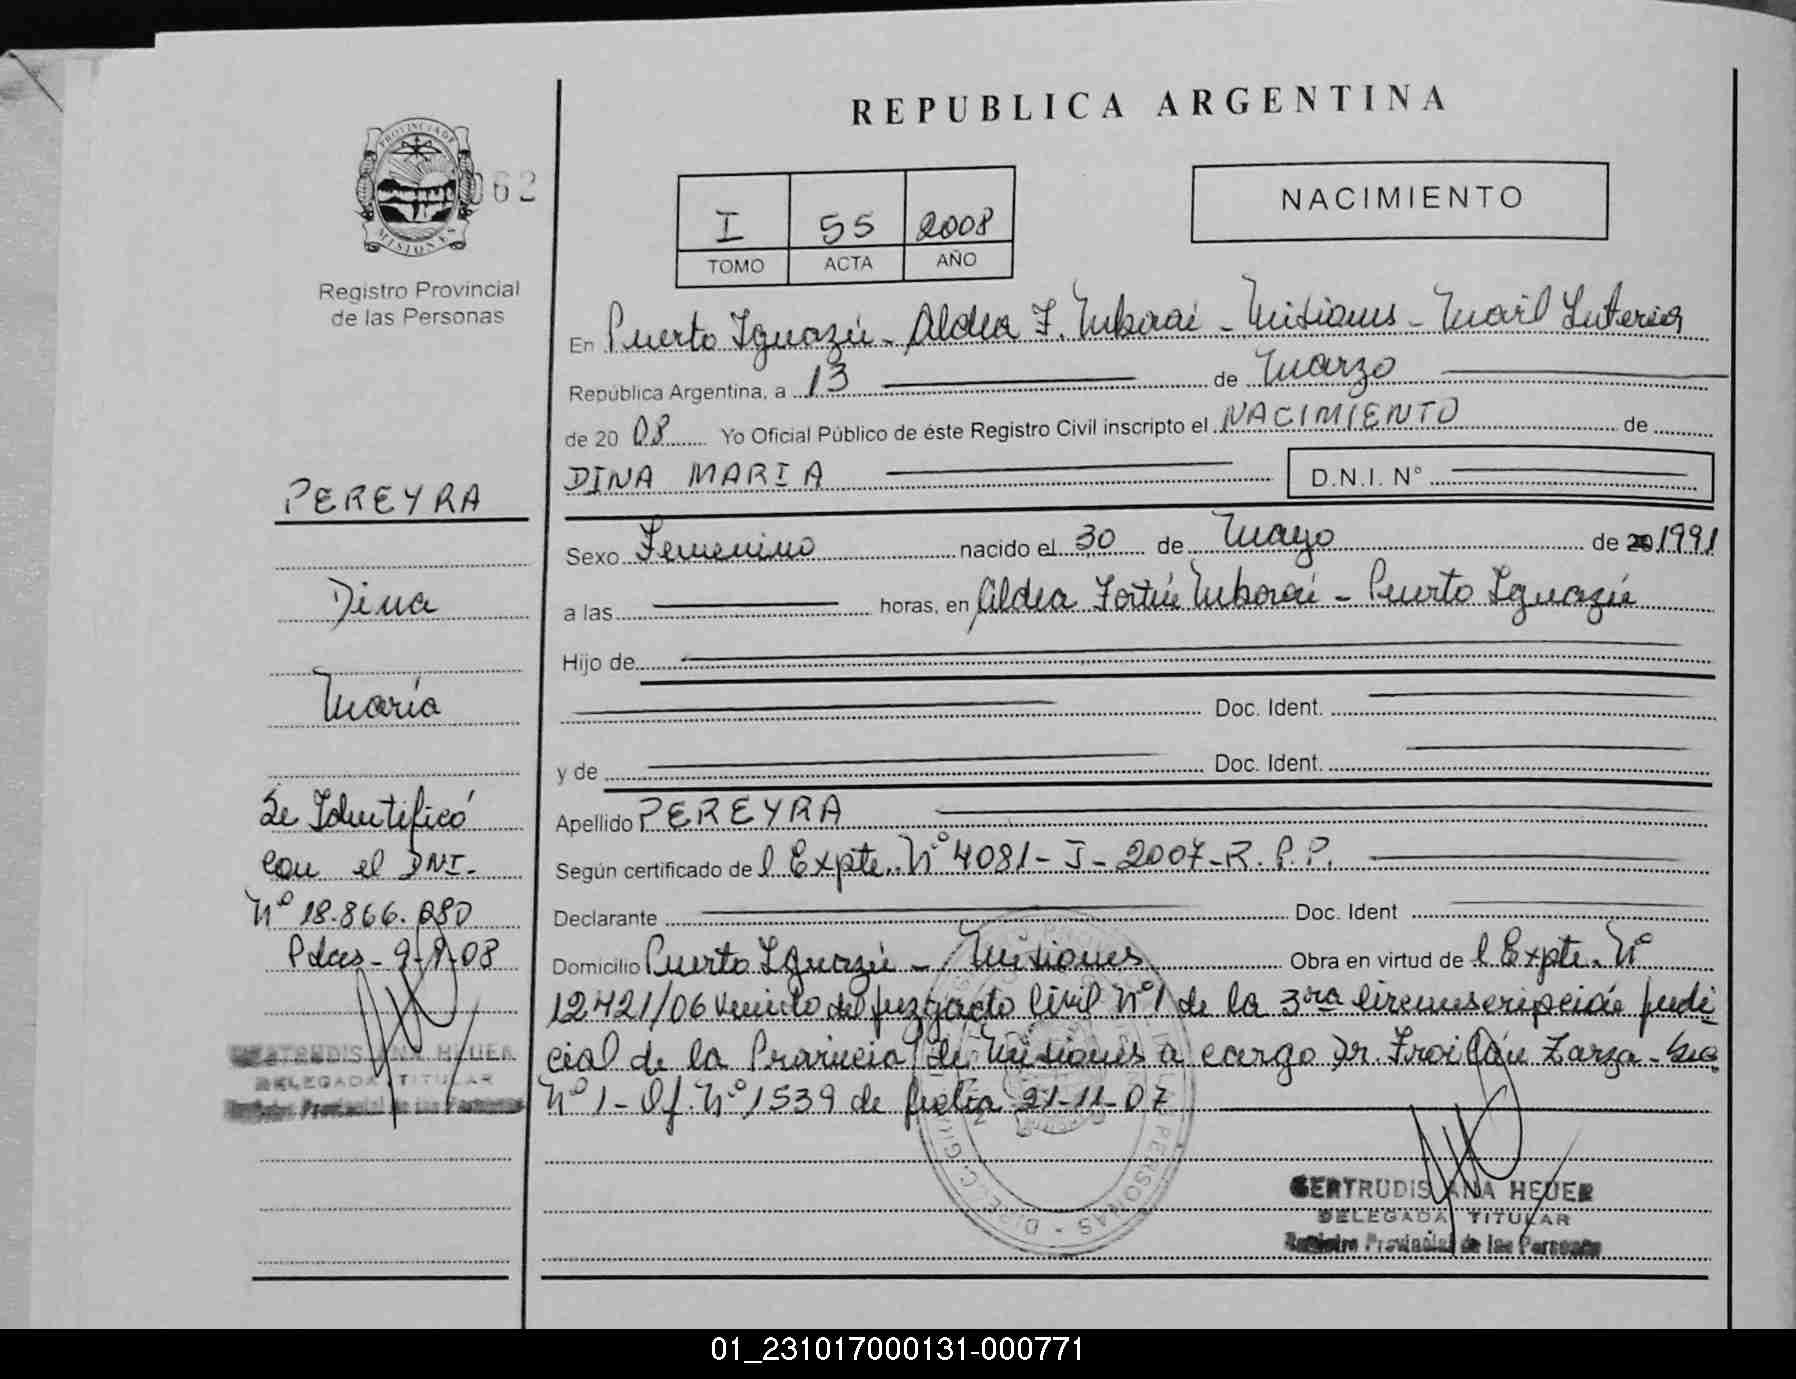 REPUBLICA ARGENTINA
PROVINCIA DE
MISIONES
062
Registro Provincial
de las Personas
I 55 2008
TOMO ACTA AÑO
NACIMIENTO
En Puerto Iguazú - Aldea F. Mborai - Misiones -
República Argentina, a 13 de Marzo
de 20 08 Yo Oficial Público de éste Registro Civil inscripto el NACIMIENTO de
DINA MARIA D.N.I. N°
PEREYRA
Dina
María
Se Identificó
con el DNI.
N° 18.866.080
Pdas - 9-9-08
GERTRUDIS ANA HEUER
DELEGADA TITULAR
Registro Provincial de las Personas
Sexo Femenino nacido el 30 de Mayo de 20 1991
a las horas, en Aldea Fortín Mborai - Puerto Iguazú
Hijo de
Doc. Ident.
y de Doc. Ident.
Apellido PEREYRA
Según certificado de l Expte. N° 4081 - I - 2007 - R. P. P.
Declarante Doc. Ident
Domicilio Puerto Iguazú - Misiones Obra en virtud de l Expte. N°
12421/06 venido del Juzgado Civil N° 1 de la 3ra Circunscripción Judi-
cial de la Provincia de Misiones a cargo Dr. Froilán Zarza - Sec.
N° 1 - Of. N° 1539 de fecha 21-11-07
PERSONAS - DIRECC. G
GERTRUDIS ANA HEUER
DELEGADA TITULAR
Registro Provincial de las Personas
01_231017000131-000771